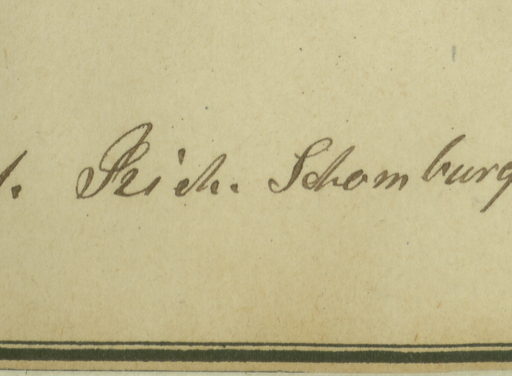 . Rich. Schomburg